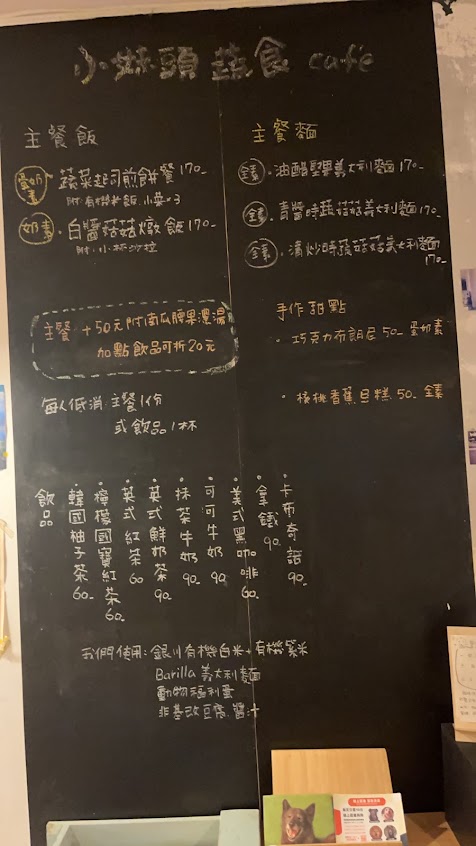 小拼頭蔬食 café
主餐飯
蛋奶素 ・蔬菜起司煎餅餐 170-
附 有機米飯.小菜×3
奶素 ・白醬菇菇燉飯 170-
附.小杯沙拉
主餐 +50元附南瓜腰果濃湯
加點飲品可折20元
每人低消 主餐1份
或飲品1杯
主餐麵
全素 ・油醋堅果義大利麵 170-
全素 ・青醬時蔬菇菇義大利麵 170-
全素 ・清炒時蔬菇菇義大利麵
170-
手作甜點
・巧克力布朗尼 50- 蛋奶素
・核桃香蕉蛋糕 50- 全素
飲品
・韓國柚子茶 60-
・檸檬國寶紅茶 60-
・英式紅茶 60
・英式鮮奶茶 90-
・抹茶牛奶 90-
・可可牛奶 90
・美式黑咖啡 60-
・拿鐵 90-
・卡布奇諾 90-
我們使用:銀川有機白米+有機紫米
Barilla 義大利麵
動物福利蛋
非基改豆腐.醬汁